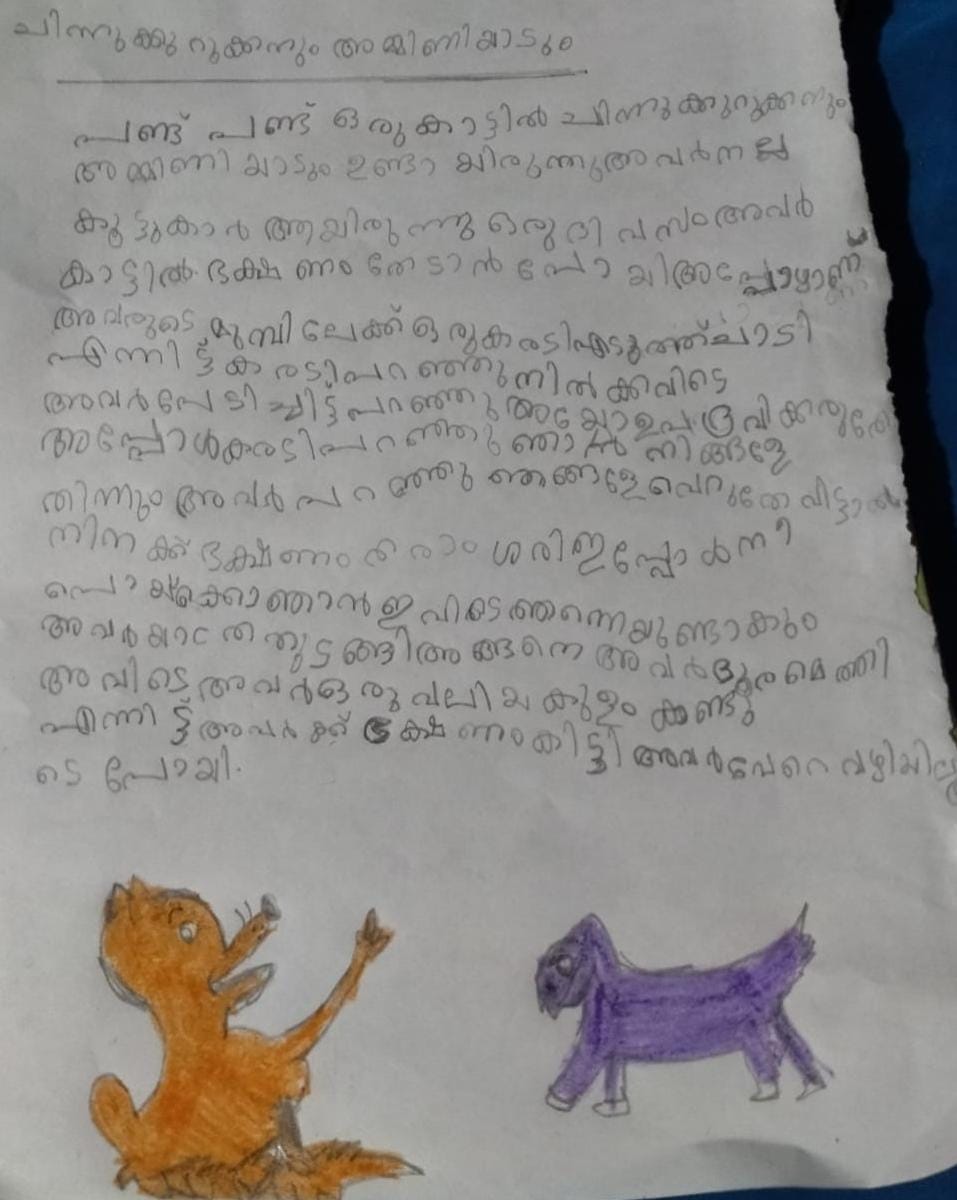 ചിന്നുക്കുറുക്കനും അമ്മിണിയാടും
പണ്ട് പണ്ട് ഒരുകാട്ടിൽ ചിന്നുക്കുറുക്കനും
അമ്മിണി യാടും ഉണ്ടാ യിരുന്നുഅവർനല്ല
കൂട്ടുകാർ ആയിരു ന്നു ഒരുദി വസംഅവർ
കാട്ടിൽ ഭക്ഷണം തേടാൻ പോ യിഅപ്പോഴാണ്
അവരുടെ മുമ്പി ലേക്ക് ഒരുകരടിഎടുത്ത്ചാടി
എന്നി ട്ട് കരടിപറ ഞ്ഞുനിൽ ക്കവിടെ
അവർപേടി ച്ചിട്ട് പറഞ്ഞു അയ്യോഉപദ്രവിക്കരുതേ
അപ്പോൾകരടിപറഞ്ഞു ഞാൻ നിങ്ങളേ
തിന്നും അവർ പറ ഞ്ഞു ഞങ്ങളേവെറുതേവിട്ടാൽ
നിന ക്ക് ഭക്ഷണം ത രാം ശരിഇപ്പോൾനീ
പൊ യ്ക്കൊഞാൻഇവിടെഞന്നെയുണ്ടാകും
അവർയാത്രതുടങ്ങിഅങ്ങനെ അവർദൂരമെത്തി
അവിടെഅവർഒരുവലിയകുളം കണ്ടു
എന്നി ട്ട്അവർക്ക് ഭക്ഷണംകിട്ടി അവർവേറെവഴിയിലൂ
ടെ പോയി.